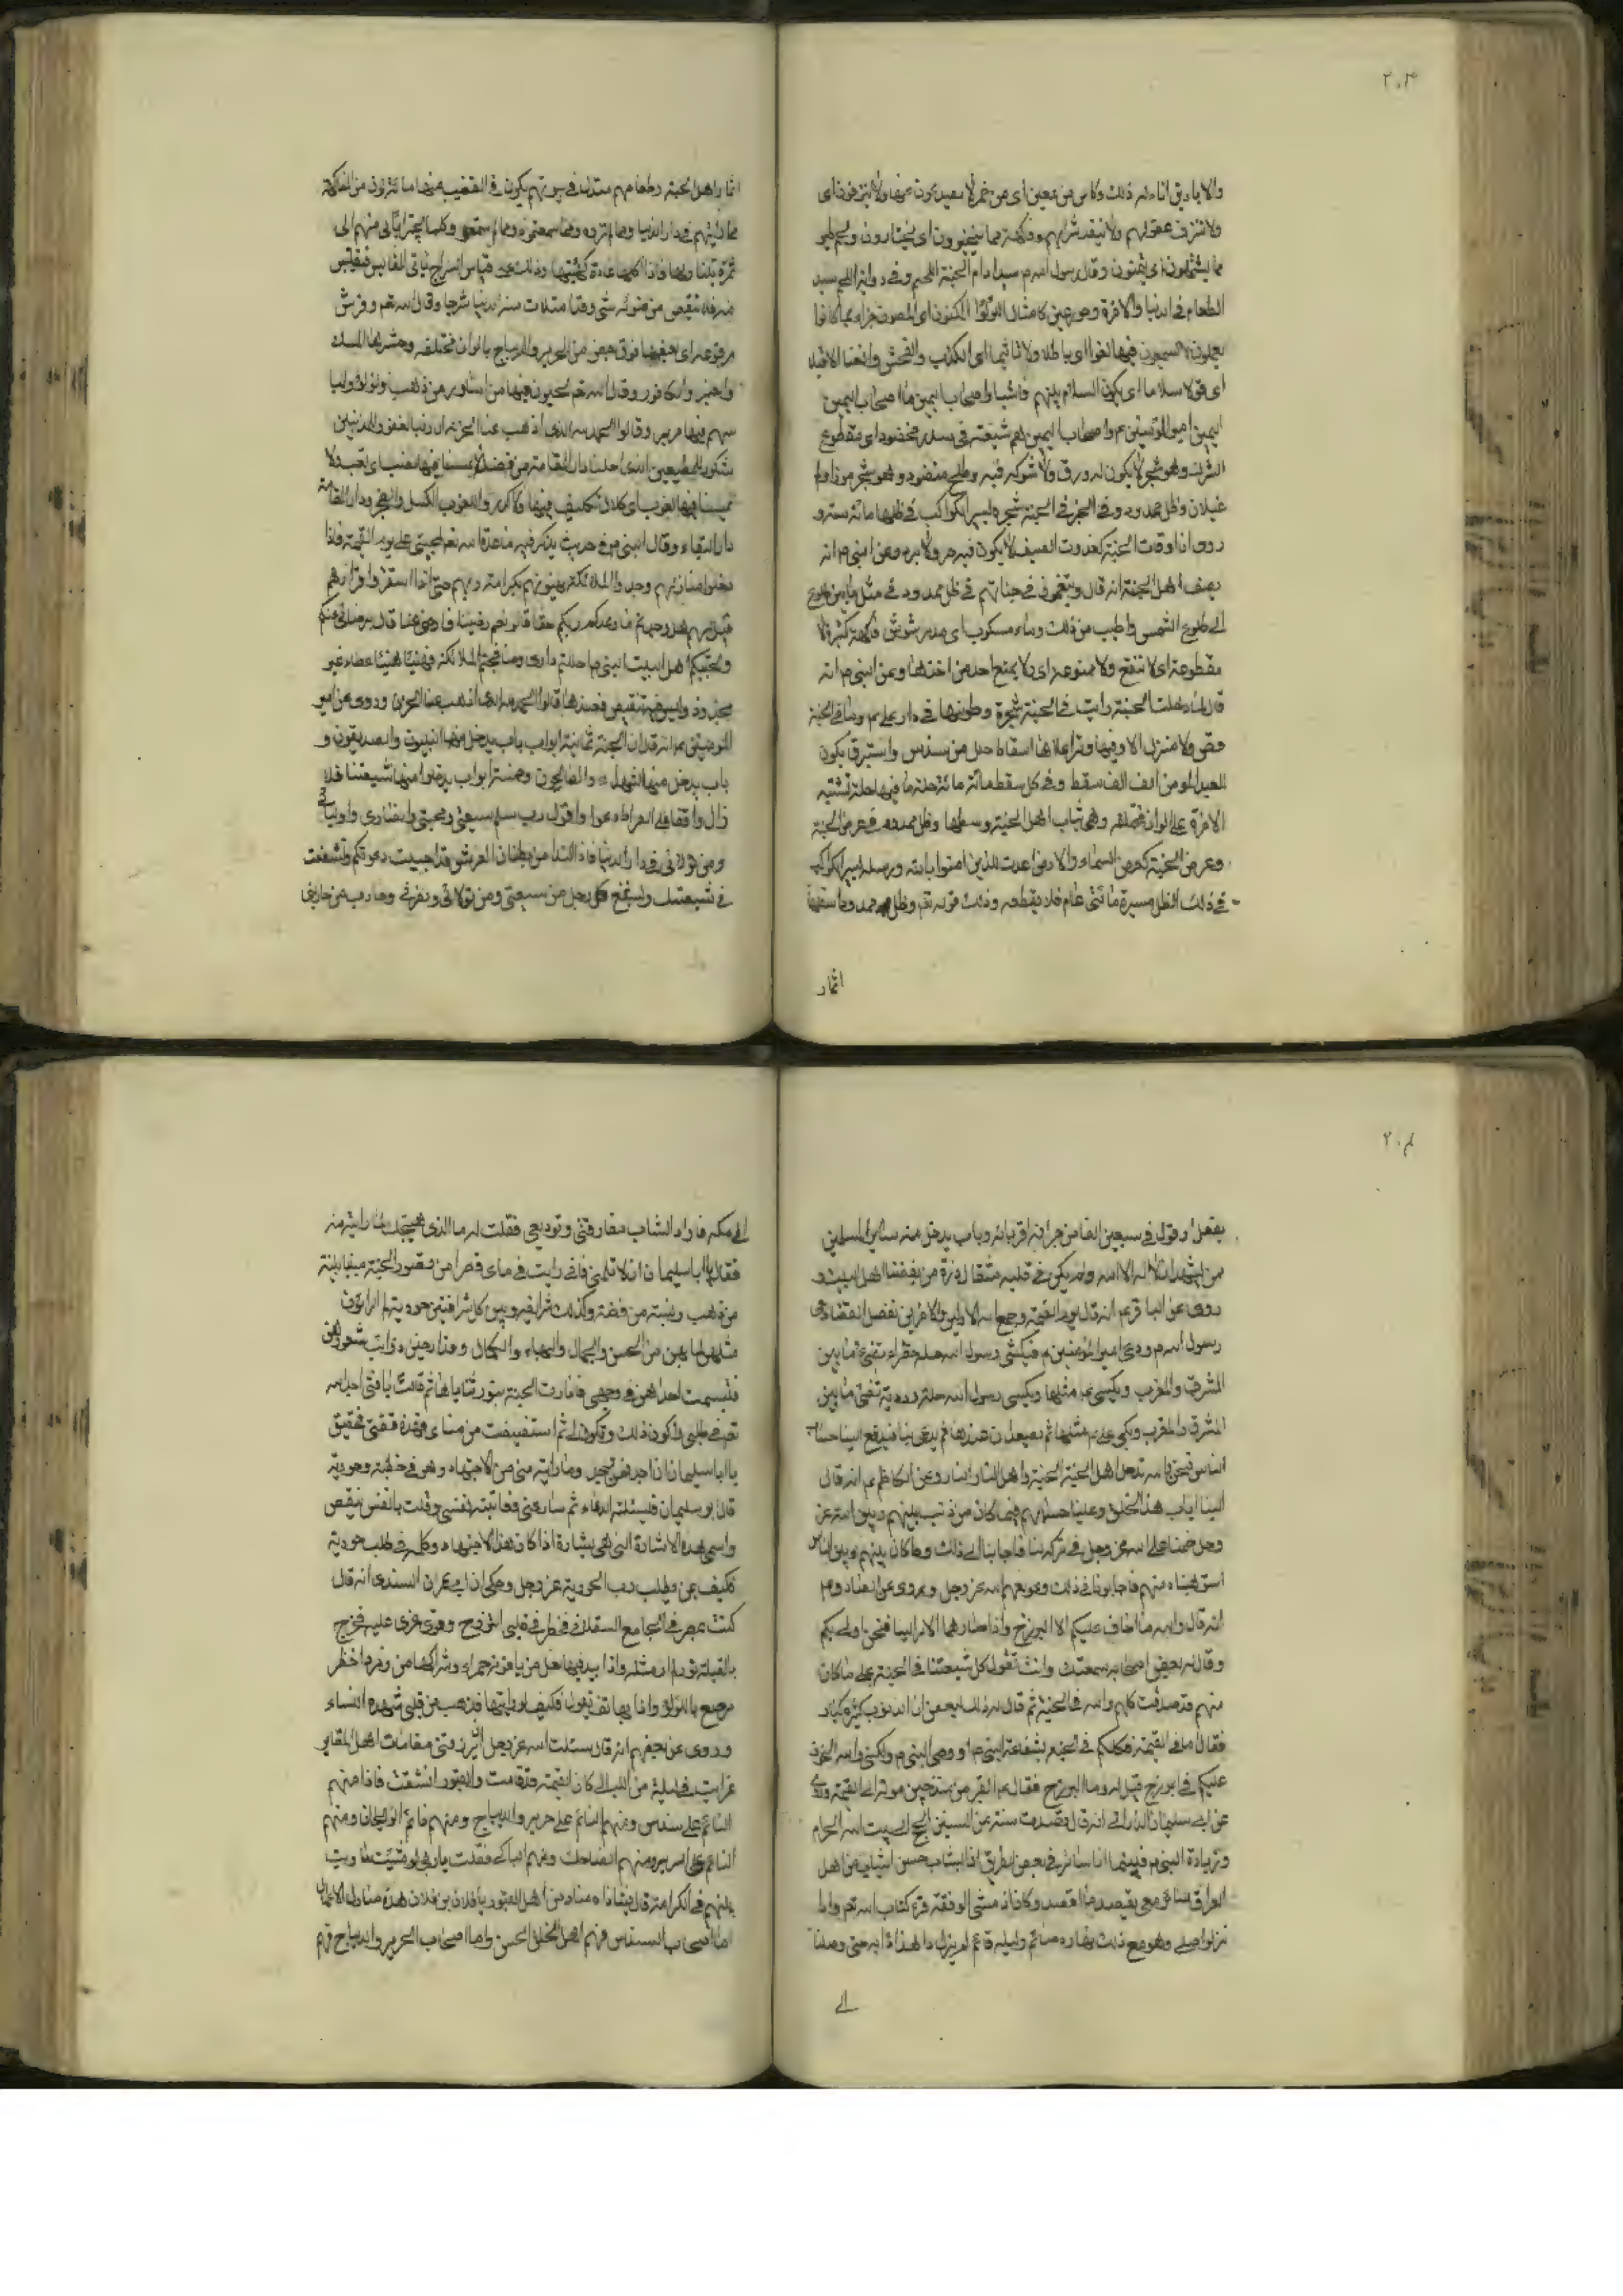 ٢٠٣
والاباريق اناء له ذلك وكاس من معين اى من خمر لا يصدعون عنها ولا ينزفون اى
ولا تنزف عقولهم ولا ينفد شرابهم وفاكهة مما يتخيرون اى يختارون ولحم طير
مما يشتهون اى يتمنون وقال رسول الله ص سيد ادام الجنة اللحم وفى رواية اللحم سيد
الطعام فى الدنيا والاخرة وحور عين كامثال اللؤلؤ المكنون اى المصون جزاء بما كانوا
يعملون لا يسمعون فيها لغوا اى باطلا ولا تاثيما اى الكذب والفحش والغنا الا قيلا
اى قولا سلاما اى يكون السلام بينهم واصحاب اليمين ما اصحاب اليمين
اليمين امير المؤمنين ع واصحاب اليمين هم شيعته فى سدر مخضود اى مقطوع
الشوك وهو شجر لا يكون له ورق ولا شوك فيه وطلح منضود وهو شجر موز او ام
غيلان وظل ممدود وفى الخبر فى الجنة شجرة يسير الراكب فى ظلها مائة سنة و
روى ان اوقات الجنة كغدوات الصيف لا يكون فيه حر ولا برد وعن النبى ص انه
يصف اهل الجنة انه قال ويتنعمون فى جناتهم فى ظل ممدود فى مثل ما بين طلوع
الى طلوع الشمس واطيب من ذلك وماء مسكوب اى وفاكهة كثيرة لا
مقطوعة اى لا تنقطع ولا ممنوعة اى ولا يمنع احد من اخذها وعن النبى ص انه
قال لما دخلت الجنة رايت فى الجنة شجرة طوبى اصلها فى دار على ع وما فى الجنة
قصر ولا منزل الا وفيها اعلاها اسفاط حلل من سندس واستبرق يكون
للعبد المؤمن الف الف سفط وفى كل سفط مائة حلة ما فيها حلة تشبه
الاخرى على الوان مختلفة وهى ثياب اهل الجنة وسطها وظل ممدود فى عرض الجنة
وعرض الجنة كعرض السماء والارض اعدت للذين امنوا بالله ورسله يسير الراكب
فى ذلك الظل مسيرة مائتى عام فلا يقطعه وذلك قوله تعم وظل ممدود واسفلها
اثمار
اثمار اهل الجنة وطعامهم متدل فى بيوتهم يكون فى القضيب منها مائة لون من الفاكهة
مما رايتهم فى دار الدنيا ومما لم تروه ومما سمعتموه ومما لم تسمعوا وكلما يجتنى منهم
ثمرة نبتت مكانها عادة كهيئتها وذلك على قياس السراج ياتى القابس فيقتبس
منه فلا ينقص من ضوئه شئ وقد امتلات منه الدنيا سرجا وقال الله تعم وفرش
مرفوعة اى بعضها فوق بعض من الحرير والديباج بالوان مختلفة وحشوها المسك
والعنبر والكافور وقال الله تعم يحلون فيها من اساور من ذهب ولؤلؤا ولبا
سهم فيها حرير وقالوا الحمد لله الذى اذهب عنا الحزن ان ربنا لغفور للمذنبين
شكور للمطيعين الذى احلنا دار المقامة من فضله لا يمسنا فيها نصب اى تعب ولا
يمسنا فيها لغوب اى كلال
دار البقاء وقال النبى ص فى حديث يذكر فيه ما عد الله تعم لمحبى على يوم القيمة فاذا
دخلوا منازلهم وجدوا الملائكة يهنونهم بكرامة ربهم حتى اذا استقروا قرارهم
قيل لهم هل وجدتم ما وعدكم ربكم حقا قالوا نعم رضينا فارض عنا قال برضائى عنكم
وبحبكم اهل البيت النبى ص احللتم دارى وصافحتم الملائكة فهنيئا هنيئا عطاء غير
مجذوذ وليس فيه تنغيص فعندها قالوا الحمد لله الذى اذهب عنا الحزن وروى عن امير
المؤمنين ع انه قال ان للجنة ثمانية ابواب باب يدخل منها النبيون والصديقون و
باب يدخل منها الشهداء والصالحون وخمسة ابواب يدخلوا منها شيعتنا فلا
زال واقفا على الصراط ادعوا واقول رب سلم شيعتى ومحبى وانصارى واوليائى
ومن تولانى فى دار الدنيا فاذا النداء من بطنان العرش قد اجيبت دعوتكم وشفعت
فى شيعتك وليشفع كل رجل من شيعتى ومن تولانى ونصرنى وحارب من حاربنى
٢٠٤
بفعل او قول فى سبعين الفا من جيرانه واقربائه وباب يدخل منه سائر المسلمين
ممن يشهد ان لا اله الا الله ولم يكن فى قلبه مثقال ذرة من بغضنا اهل البيت و
روى عن الباقر ع انه قال يوم القيمة وجمع الله الاولين والاخرين لفصل القضاء دعى
رسول الله ص ودعى امير المؤمنين ع فيكسى رسول الله حلة خضراء تضئ ما بين
المشرق والمغرب ويكسى ع مثلها ويكسى رسول الله حلة وردية تضئ ما بين
المشرق والمغرب ويكسى على ع مثلها ثم يصعدان عندها ثم يدعى بنا فيدفع الينا حساب
الناس فنحن والله ندخل اهل الجنة الجنة واهل النار النار وعن الكاظم ع انه قال
الينا اياب هذا الخلق وعلينا حسابهم فما كان من ذنب بينهم وبين الله عز
وجل حتمنا على الله عز وجل فى تركه لنا فاجابنا الى ذلك وما كان بينهم وبين الناس
استوهبناه منهم فاجابونا فى ذلك وعوضهم الله عز وجل ويروى عن الصادق ع
انه قال والله ما اخاف عليكم الا البرزخ واذا صار الامر الينا فنحن اولى بكم
وقال له بعض اصحابه سمعتك وانت تقول كل شيعتنا فى الجنة على ما كان
منهم قد صدقت كلهم والله فى الجنة ثم قال له ذلك البعض ان الذنوب كثيرة كبار
فقال اما فى القيمة فكلكم فى الجنة بشفاعة النبى ص او وصى النبى ص ولكنى والله اتخوف
عليكم فى البرزخ قيل له وما البرزخ فقال ع القبر من منذ حين موته الى القيمة
عن ابى سليمان الدارانى انه قال قصدت سنة من السنين الحج الى بيت الله الحرام
وزيارة النبى ص فبينما انا سائر فى بعض الطريق اذا بشاب حسن الشباب من اهل
العراق سائر معى يقصد ما اقصد وكان اذا مشى الوفقة قرء كتاب الله تعم واذا
نزلوا صلى وهو مع ذلك نهاره صائم وليله قائم لم يزل دا لهذا دابه حتى وصلنا
الى
الى مكة فاراد الشاب مفارقتى وتوديعى فقلت له ما الذى هيجك لما رايته منه
فقال يا ابا سليمان لا تلمنى فانى رايت فى منامى قصرا من قصور الجنة مبنيا بلبنة
من ذهب ولبنة من فضة وكذلك شرافيه وبين كل شرافتين حورية لم ير الراؤن
مثلهن لما بهن من الحسن والجمال والبهاء والكمال
فتبسمت احداهن فى وجهى فانارت الجنة بنور ثناياها ثم قالت يا فتى
تعم فى طلبى لاكون لك وتكون لى ثم استيقظت من منامى فهذه قصتى فحقيق
يا ابا سليمان اذا اجد فمن يجد وما رايته منى من الاجتهاد وهو فى خطبة وحورية
قال ابو سليمان فسئلته الدعاء ثم سار عنى فعاتبته نفسى وقلت يا نفس تيقظى
واسمعى هذه الاشارة التى هى بشارة اذا كان هذا الاجتهاد وكله فى طلب حورية
فكيف بمن يطلب رب الحورية عز وجل وحكى ان ابى عمران السندى انه قال
كنت بمصر فى الجامع فخطر فى قلبى التزويج وقوى عزمى عليه فخرج
بالقبلة نور لم ار مثله واذا بيد فيها نعل من ياقوتة حمراء وشراكها من زمرد اخضر
مرصع باللؤلؤ واذا بهاتف يقول فكيف لو رايتها فذهب من قلبى شهوة النساء
وروى عن بعضهم انه قال سئلت الله عز وجل ان يرزقنى مقامات اهل المقابر
فرايت فى ليلة من الليالى كان القيمة قد قامت والقبور انشقت فاذا منهم
النائم على سندس ومنهم النائم على حرير والديباج ومنهم نائم الريحان ومنهم
النائم على السرير ومنهم الضاحك ومنهم الباكى فقلت يا رب لو شئت ساويت
بينهم فى الكرامة قال فنادى مناد من اهل القبور يا فلان بن فلان هذه منازل الاعمال
اما اصحاب السندس فهم اهل الخلق الحسن واما اصحاب الحرير والديباج فهم